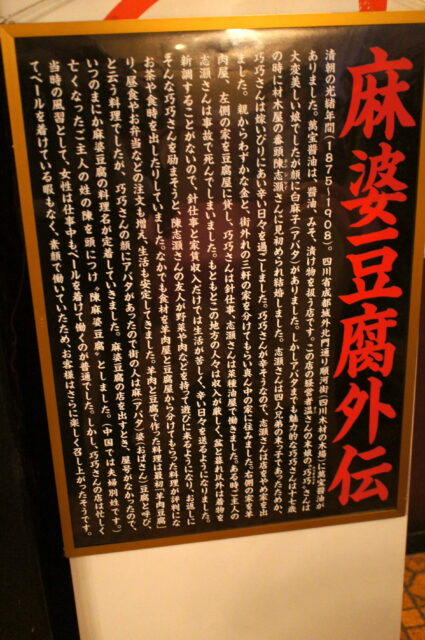 麻婆豆腐外伝
清朝の光緒年間(1875~1908)。四川省成都城外北門通り順河街(谷川木材の木場)に萬宝醤油が
ありました。萬宝醤油は、醤油、みそ、漬け物を扱う店です。この店の経営者温さんの末娘の巧巧さんは
大変美しい娘でしたが顔に白麻子(アバタ)がありました。しかしアバタまでも魅力的な巧巧さんは十七歳
の時に材木屋の番頭陳志灝さんに見初められ結婚しました。志灝さんは四人兄弟の末っ子であったためか、
巧巧さんは嫁いびりにあい辛い日々を過ごしました。巧巧さんが辛そうなので、志灝さんは店をやめ家を出
ました。親からわずかな金と、街外れの三軒の家を分けてもらい真ん中の家に住みました。右側の家を羊
肉屋、左側の家を豆腐屋に貸し、巧巧さんは針仕事、志灝さんは菜種油屋で働きました。ある時ご主人の
志灝さんは事故で死んでしまいました。もともとこの地方の人々は収入が厳しく、盆と暮れ以外は着物を
新調することがないので、針仕事と家賃収入だけでは生活が苦しく、辛い日々を送るようになりました。
そんな巧巧さんを励まそうと、陳志灝さんの友人が野菜や肉などを持って遊びに来るようになり、お返しに
お茶や食事を出したりしていました。なかでも食材を羊肉屋と豆腐屋から分けてもらった料理が評判にな
り、昼食やお弁当などの注文も増え、生活も安定してきました。羊肉と豆腐で作った料理は最初「羊肉豆腐」
と云う料理でしたが、巧巧さんの顔にアバタがあったので街の人は麻(アバタ)婆(おばさん)豆腐と呼び、
いつのまにか麻婆豆腐の料理名が定着していきました。麻婆豆腐の店を出すとき、屋号がなかったので、
亡くなったご主人の姓の陳を頭につけ「陳麻婆豆腐」としました。(中国では夫婦別姓です。)
当時の風習として、女性は仕事中もベールを着けて働くのが普通でした。しかし、巧巧さんの店は忙しく
てベールを着けている暇もなく、素顔で働いていたため、お客様はさらに楽しく召し上がったそうです。